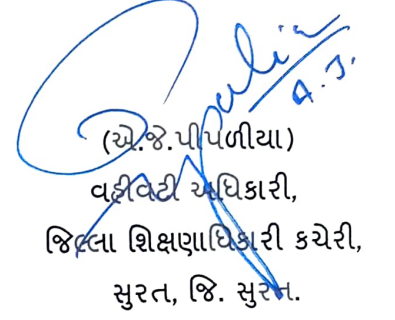 A. J.
(એ.જે.પીપળીયા)
વહીવટી અધિકારી,
જિલ્લા શિક્ષણાધિકારી કચેરી,
સુરત, જિ. સુરત.